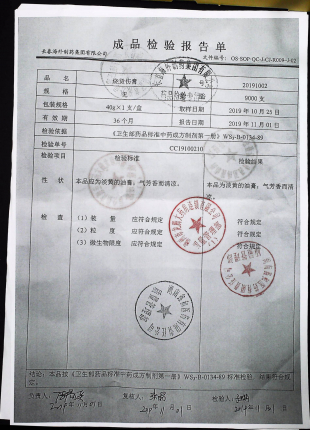 成品检验报告单
长春海外制药集团有限公司 文件编号: OS-SOP-QC-J-CJ-R009-J-02
品 名 烧烫伤膏 20191002
9000支
包装规格 40g×1支/盒 取样日期 2019年10月25日
有效期 36个月 报告日期 2019年11月01日
检验依据 《卫生部药品标准中药成方制剂第一册》WS₃-B-0134-89
检验单号 CC19100210
检验项目 检验标准 检验结果
性 状 本品应为淡黄的油膏,气芳香而清凉。 本品为淡黄的油膏,气芳香而清
检 查 (1)装 量 应符合规定 符合规定
(2)粒 度 应符合规定 符合规定
(3)微生物限度 应符合规定 符合规定
结论:本品按《卫生部药品标准中药成方制剂第一册》WS₃-B-0134-89标准检验,结果符合规
定。
负责人: 2019年11月01日 复核人: 2019年11月01日 检验人: 2019年11月01日